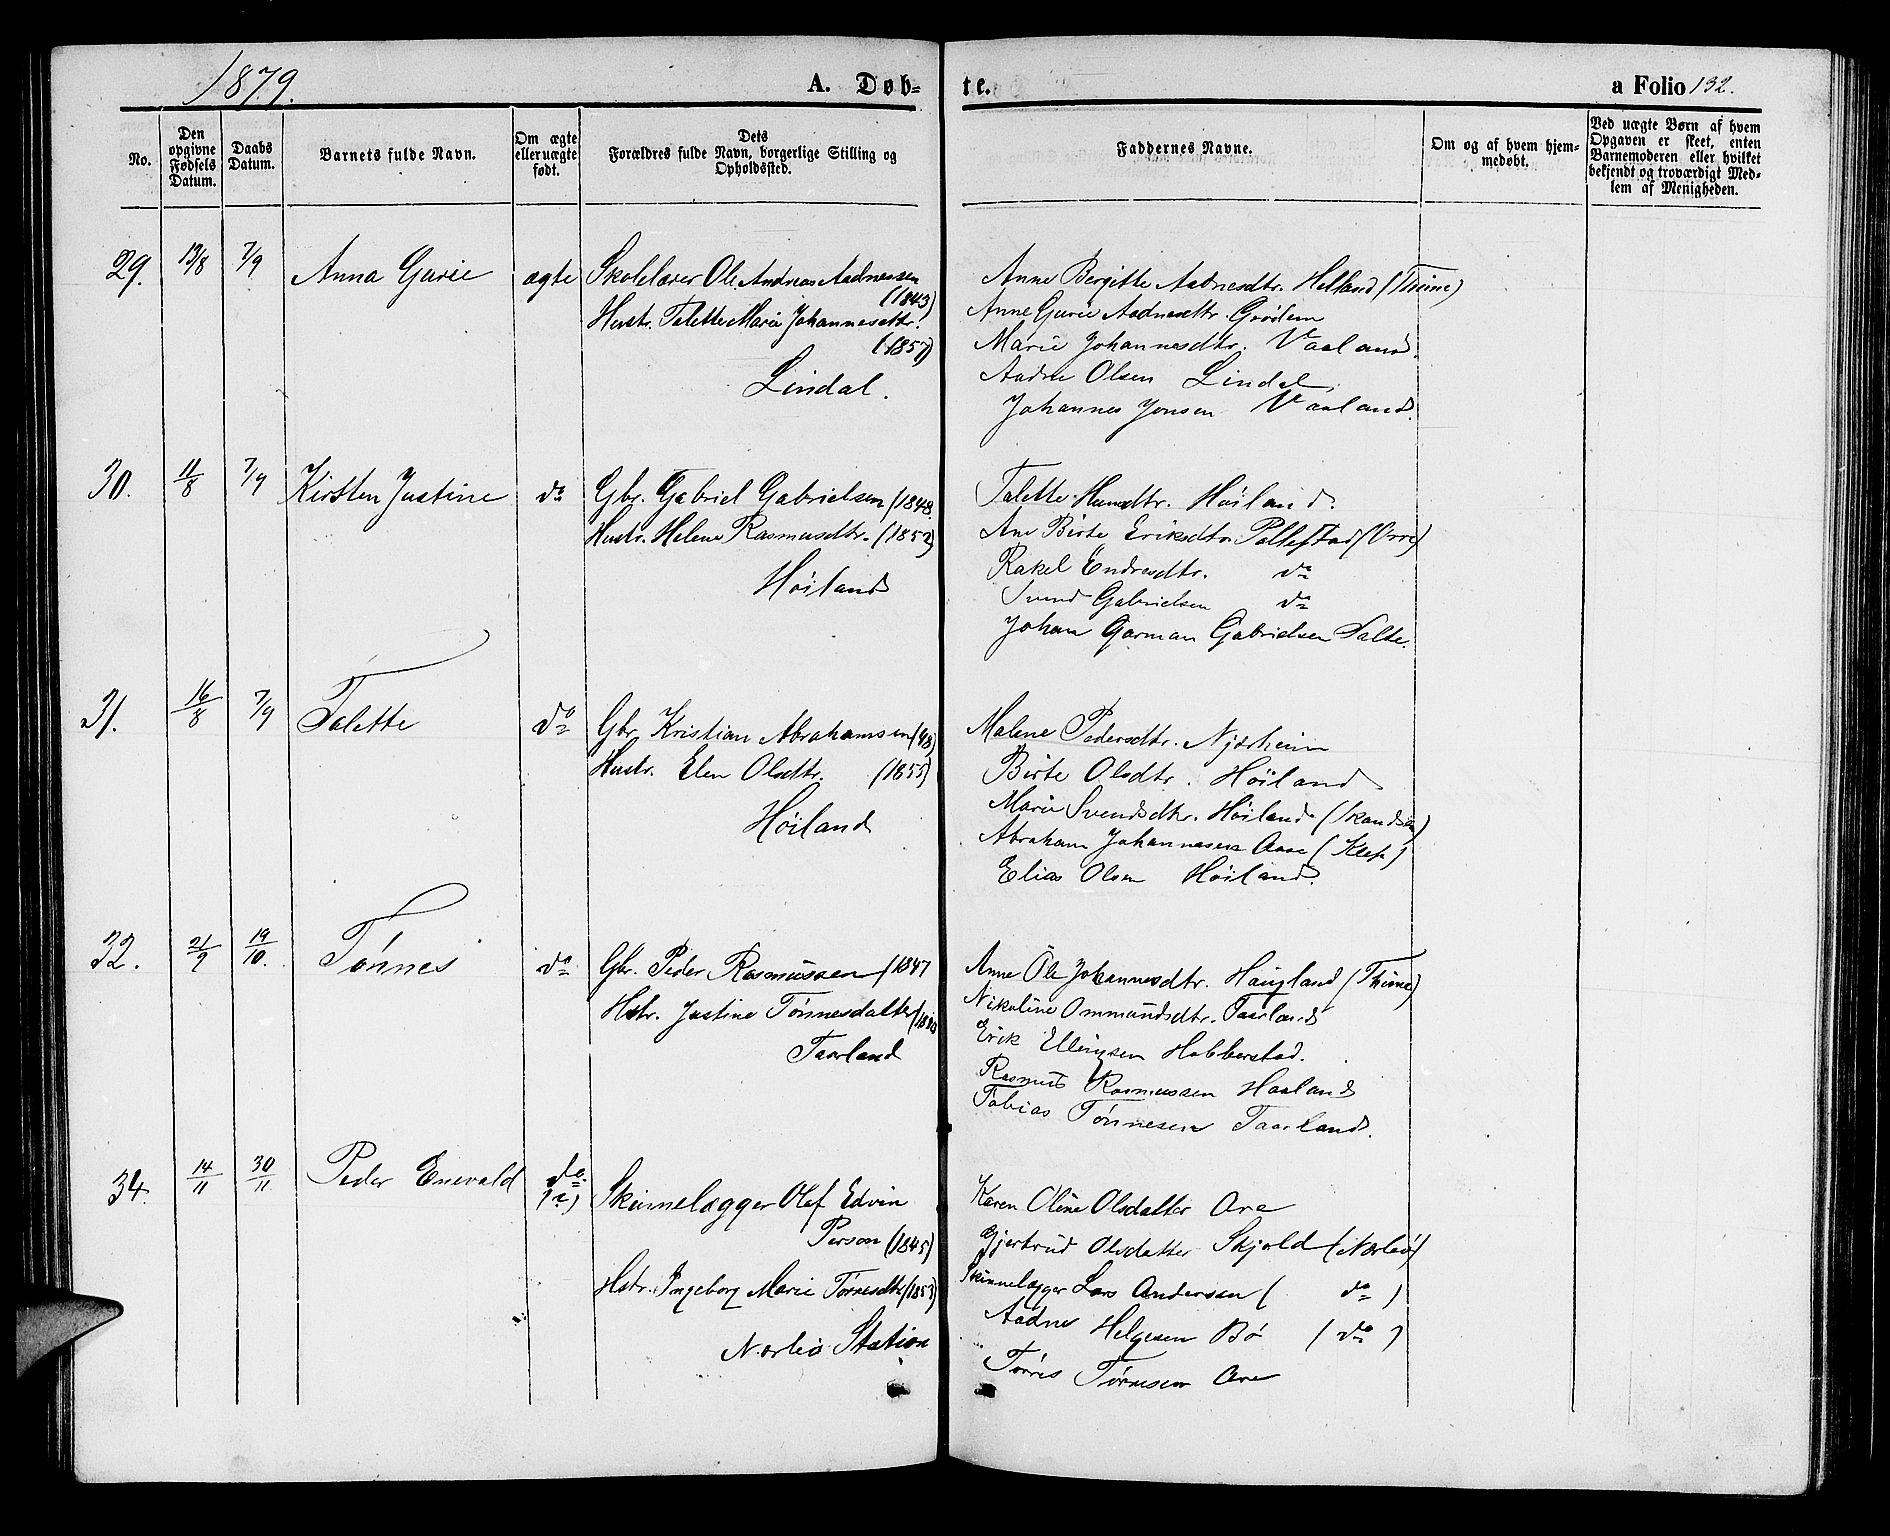 1879.
A. Døb-
te.
a Folio 132.
No.
Den opgivne Fødsels Datum.
Daabs Datum.
Barnets fulde Navn.
Om ægte eller uægte født.
Dets Forældres fulde Navn, borgerlige Stilling og Opholdssted.
Faddernes Navne.
Om og af hvem hjemmedøbt.
Ved uægte Børn af hvem Opgaven er skeet, enten Barnemoderen eller hvilket bekjendt og troværdigt Medlem af Menigheden.
29. 13/8 7/9 Anna Gurie ægte
Skolelærer Ole Andreas Aadnessen
(1843)
Hustr. Talette Marie Johannesdtr.
(1857)
Lindal.
Anne Bergitte Aadnesdtr. Helland (Thime)
Anne Gurie Aadnesdtr. Grødem
Marie Johannesdtr. Vaaland.
Aadne Olsen Lindal.
Johannes Jonsen Vaaland.
30. 11/8 7/9 Kirsten Justine do
Gbr. Gabriel Gabrielsen (1848.
Hustr. Helene Rasmusdtr. (1852)
Høiland
Talette Hansdtr. Høiland.
Ane Birte Eriksdtr Pollestad (Orre)
Rakel Endresdtr. do
Svend Gabrielsen do
Johan Garman Gabrielsen Salte.
31. 16/8 7/9 Talette do
Gbr. Kristian Abrahamsen (48)
Hustr. Elen Olsdtr. (1855)
Høiland
Malene Pedersdtr. Njærheim
Birte Olsdtr. Høiland
Marie Svendsdtr. Høiland (Skandsen)
Abraham Johannesen Aase (Klep)
Elias Olsen Høiland.
32. 21/9 19/10. Tønnes do
Gbr. Peder Rasmussen (1847
Hstr. Justine Tønnesdatter
Taarland
Anne Ole Johannesdtr. Haugland (Thime)
Nikoline Ommundsdtr. Taarland
Erik Ellingsen Hobberstad.
Rasmus Rasmussen Haaland
Tobias Tønnesen Taarland.
34. 14/11 30/11 Peder Enevald do
Skinnelægger Olef Edvin
Person (1845)
Hstr. Ingeborg Marie Tørresdtr (1853)
Nærbø Station
Karen Oline Olsdatter Are
Gjertrud Olsdatter Skjold (Nærbø)
Skinnelægger Lars Andersen ( do )
Aadne Helgesen Bø ( do )
Tørres Tørresen Are